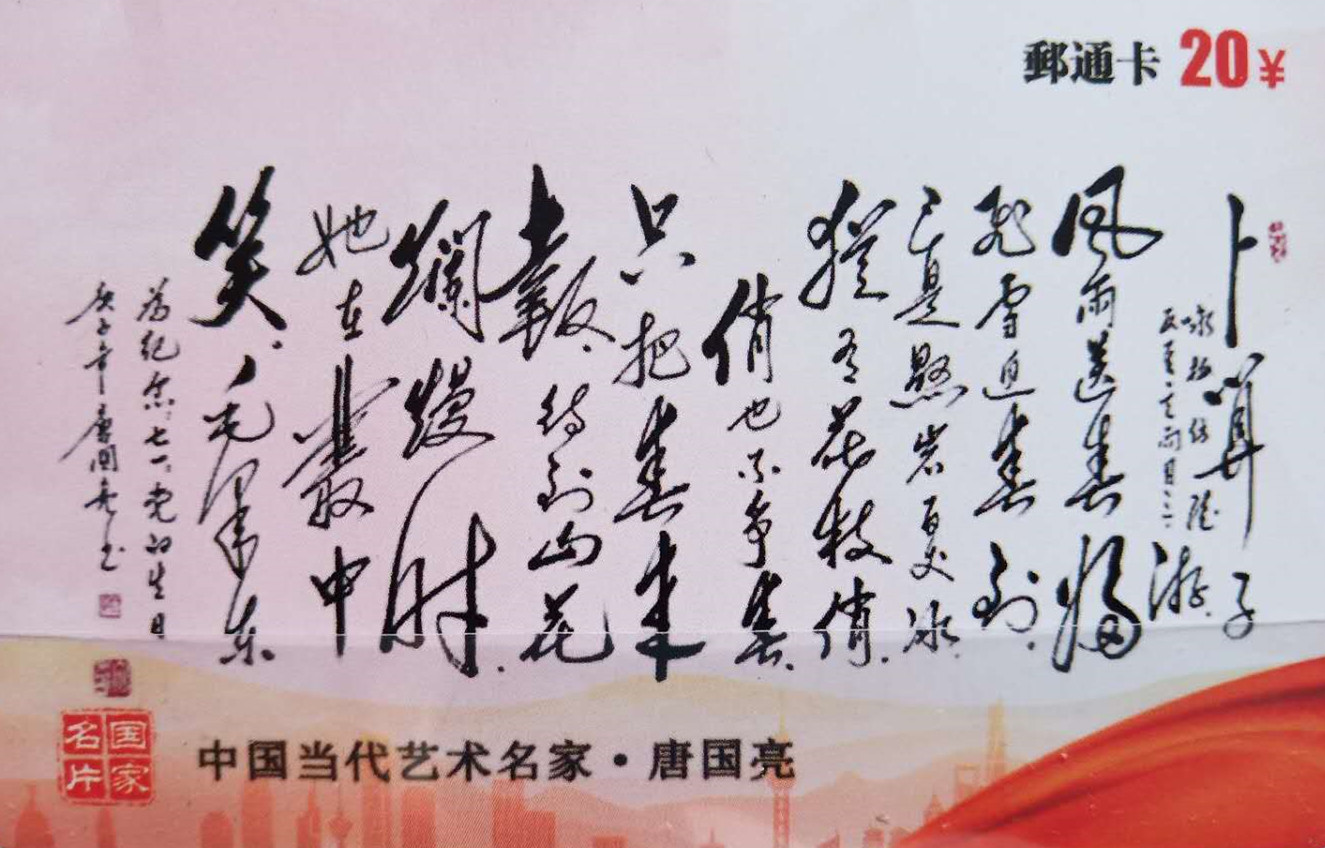 郵通卡 20¥
卜算子
风雨送春归
飞雪迫春到
已是懸岩百丈冰
犹有花枝俏
俏也不争春
只把春来
報待到山花
爛熳时
她在叢中
笑 毛泽东
为纪念七一党的生日
庚子年唐國亮书
国家名片
中国当代艺术名家·唐国亮